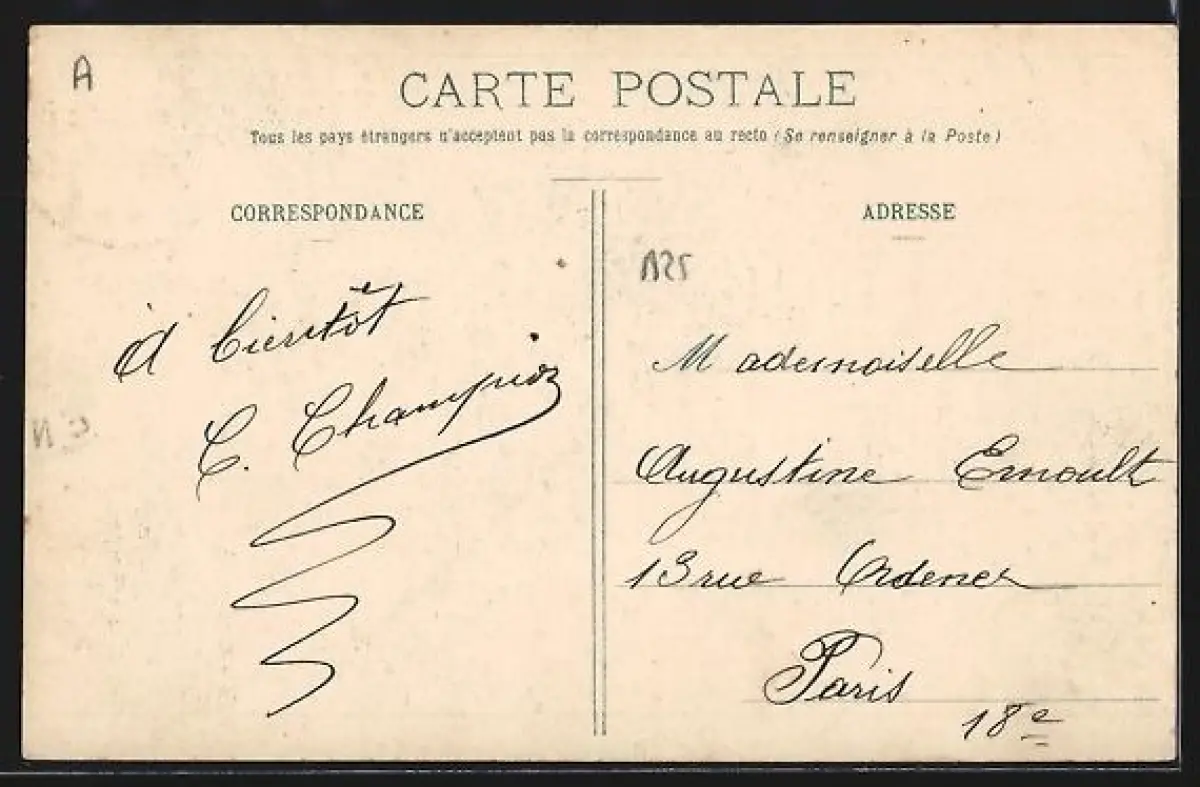 A
CARTE POSTALE
Tous les pays étrangers n'acceptent pas la correspondance au recto (Se renseigner à la Poste)
CORRESPONDANCE
A bientôt
C. Champion
ADRESSE
Mademoiselle
Augustine Ernoult
13 rue Ordener
Paris
18e